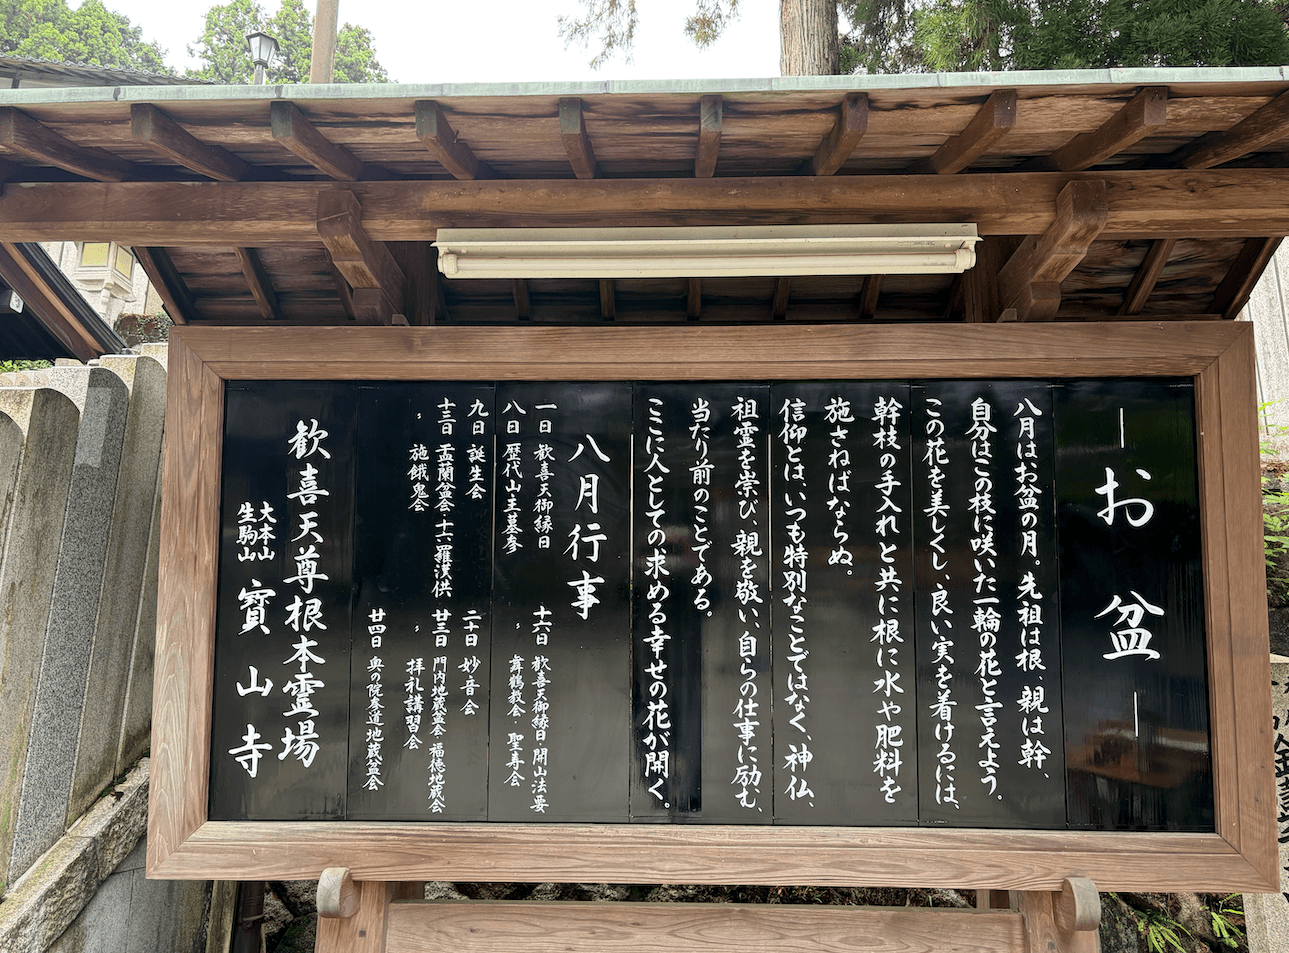 ―お盆―
八月はお盆の月。先祖は根、親は幹、
自分はこの枝に咲いた一輪の花と言えよう。
この花を美しくし、良い実を着けるには、
幹枝の手入れと共に根に水や肥料を
施さねばならぬ。
信仰とは、いつも特別なことではなく、神仏、
祖霊を崇び、親を敬い、自らの仕事に励む、
当たり前のことである。
ここに人としての求める幸せの花が開く。
八月行事
一日 歓喜天御縁日
八日 歴代山主墓参
九日 誕生会
十三日 盂蘭盆会・十六羅漢供
〃 施餓鬼会
十六日 歓喜天御縁日 開山法要
〃 舞鶴教会・聖寿会
二十日 妙音会
廿三日 門内地蔵盆会・福徳地蔵会
〃 拝礼講習会
廿四日 奥の院参道地蔵盆会
歓喜天尊根本霊場
大本山
生駒山
寳山寺